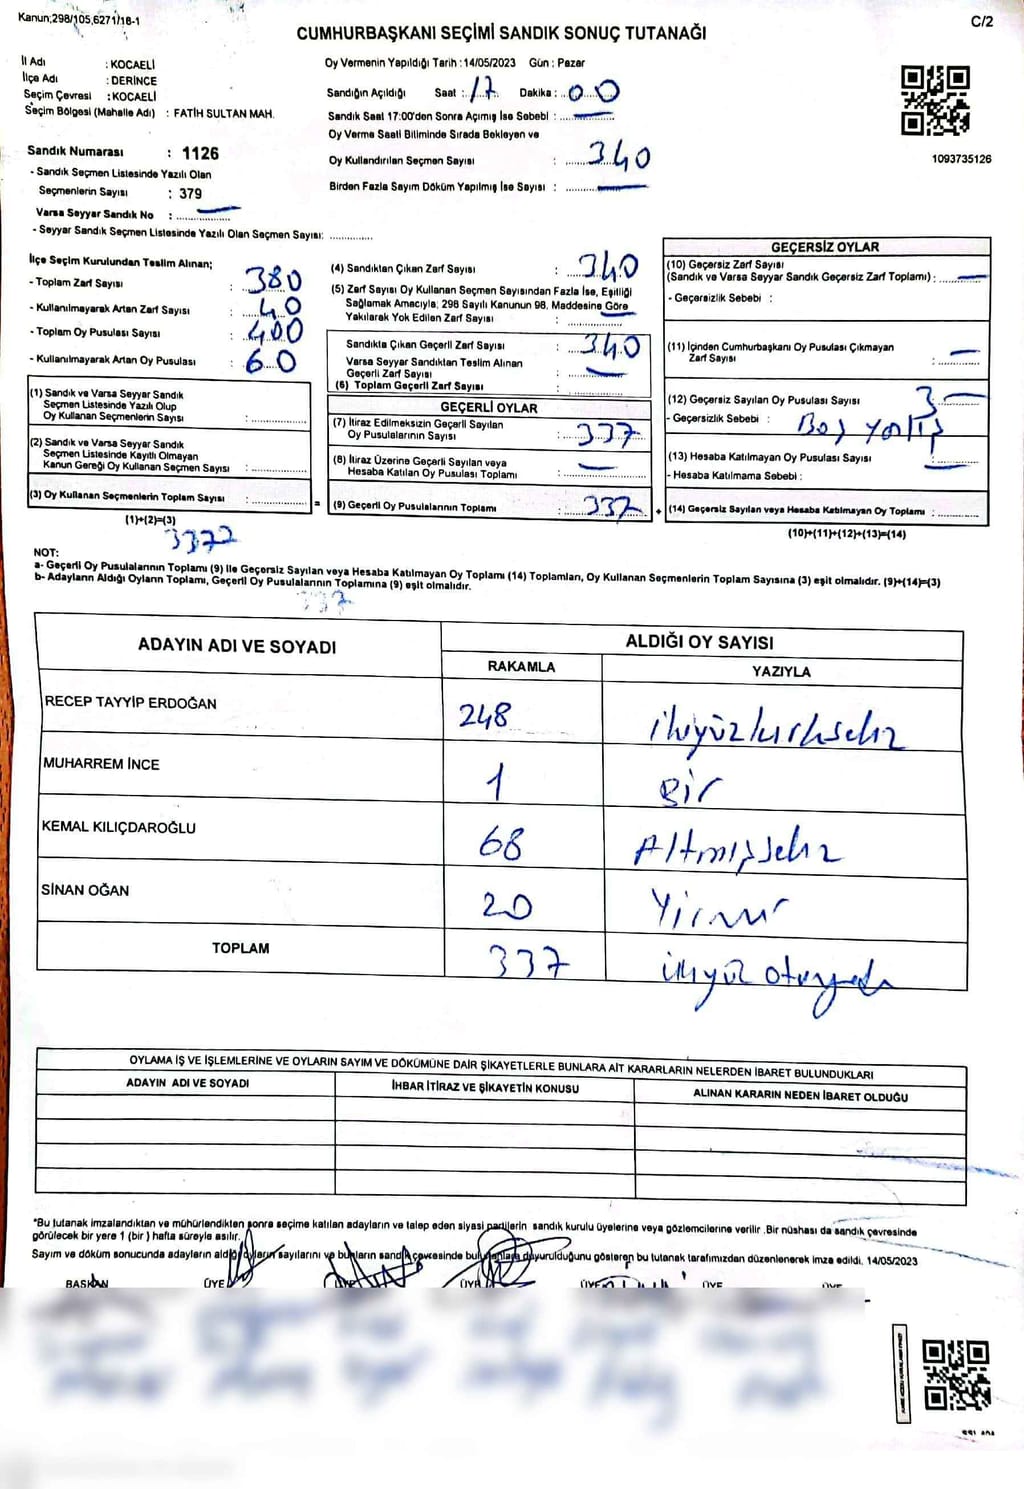 Kanun;298/105,6271/18-1
C/2
CUMHURBAŞKANI SEÇİMİ SANDIK SONUÇ TUTANAĞI
İl Adı : KOCAELİ
İlçe Adı : DERİNCE
Seçim Çevresi : KOCAELİ
Seçim Bölgesi (Mahalle Adı) : FATİH SULTAN MAH.
Sandık Numarası : 1126
- Sandık Seçmen Listesinde Yazılı Olan
Seçmenlerin Sayısı : 379
Varsa Seyyar Sandık No :
- Seyyar Sandık Seçmen Listesinde Yazılı Olan Seçmen Sayısı:
Oy Vermenin Yapıldığı Tarih :14/05/2023 Gün : Pazar
Sandığın Açıldığı Saat : 17 Dakika : 00
Sandık Saat 17:00'den Sonra Açımış İse Sebebi :
Oy Verme Saati Bitiminde Sırada Bekleyen ve
Oy Kullandırılan Seçmen Sayısı : 340
Birden Fazla Sayım Döküm Yapılmış İse Sayısı :
1093735126
İlçe Seçim Kurulundan Teslim Alınan;
- Toplam Zarf Sayısı : 380
- Kullanılmayarak Artan Zarf Sayısı : 40
- Toplam Oy Pusulası Sayısı : 400
- Kullanılmayarak Artan Oy Pusulası : 60
(1) Sandık ve Varsa Seyyar Sandık
Seçmen Listesinde Yazılı Olup
Oy Kullanan Seçmenlerin Sayısı :
(2) Sandık ve Varsa Seyyar Sandık
Seçmen Listesinde Kayıtlı Olmayan
Kanun Gereği Oy Kullanan Seçmen Sayısı :
(3) Oy Kullanan Seçmenlerin Toplam Sayısı :
(1)+(2)=(3)
(4) Sandıktan Çıkan Zarf Sayısı : 340
(5) Zarf Sayısı Oy Kullanan Seçmen Sayısından Fazla İse, Eşitliği
Sağlamak Amacıyla; 298 Sayılı Kanunun 98. Maddesine Göre
Yakılarak Yok Edilen Zarf Sayısı :
Sandıkta Çıkan Geçerli Zarf Sayısı : 340
Varsa Seyyar Sandıktan Teslim Alınan
Geçerli Zarf Sayısı :
(6) Toplam Geçerli Zarf Sayısı :
GEÇERLİ OYLAR
(7) İtiraz Edilmeksizin Geçerli Sayılan
Oy Pusulalarının Sayısı : 337
(8) İtiraz Üzerine Geçerli Sayılan veya
Hesaba Katılan Oy Pusulası Toplamı :
(9) Geçerli Oy Pusulalarının Toplamı : 337
GEÇERSİZ OYLAR
(10) Geçersiz Zarf Sayısı
(Sandık ve Varsa Seyyar Sandık Geçersiz Zarf Toplamı) :
- Geçersizlik Sebebi :
(11) İçinden Cumhurbaşkanı Oy Pusulası Çıkmayan
Zarf Sayısı :
(12) Geçersiz Sayılan Oy Pusulası Sayısı : 3
- Geçersizlik Sebebi :
(13) Hesaba Katılmayan Oy Pusulası Sayısı :
- Hesaba Katılmama Sebebi :
(14) Geçersiz Sayılan veya Hesaba Katılmayan Oy Toplamı :
(10)+(11)+(12)+(13)=(14)
NOT:
a- Geçerli Oy Pusulalarının Toplamı (9) ile Geçersiz Sayılan veya Hesaba Katılmayan Oy Toplamı (14) Toplamları, Oy Kullanan Seçmenlerin Toplam Sayısına (3) eşit olmalıdır. (9)+(14)=(3)
b- Adayların Aldığı Oyların Toplamı, Geçerli Oy Pusulalarının Toplamına (9) eşit olmalıdır.
337
ADAYIN ADI VE SOYADI ALDIĞI OY SAYISI
RAKAMLA YAZIYLA
RECEP TAYYİP ERDOĞAN 248 ikiyüzkırksekiz
MUHARREM İNCE 1 Bir
KEMAL KILIÇDAROĞLU 68 Altmışsekiz
SİNAN OĞAN 20 Yirmi
TOPLAM 337
OYLAMA İŞ VE İŞLEMLERİNE VE OYLARIN SAYIM VE DÖKÜMÜNE DAİR ŞİKAYETLERLE BUNLARA AİT KARARLARIN NELERDEN İBARET BULUNDUKLARI
ADAYIN ADI VE SOYADI İHBAR İTİRAZ VE ŞİKAYETİN KONUSU ALINAN KARARIN NEDEN İBARET OLDUĞU
*Bu tutanak imzalandıktan ve mühürlendikten sonra seçime katılan adayların ve talep eden siyasi partilerin sandık kurulu üyelerine veya gözlemcilerine verilir .Bir nüshası da sandık çevresinde
görülecek bir yere 1 (bir ) hafta süreyle asılır.
Sayım ve döküm sonucunda adayların aldığı oyların sayılarını ve bunların sandık çevresinde bulunanlara duyurulduğunu gösteren bu tutanak tarafımızdan düzenlenerek imza edildi. 14/05/2023
BAŞKAN ÜYE ÜYE ÜYE ÜYE ÜYE